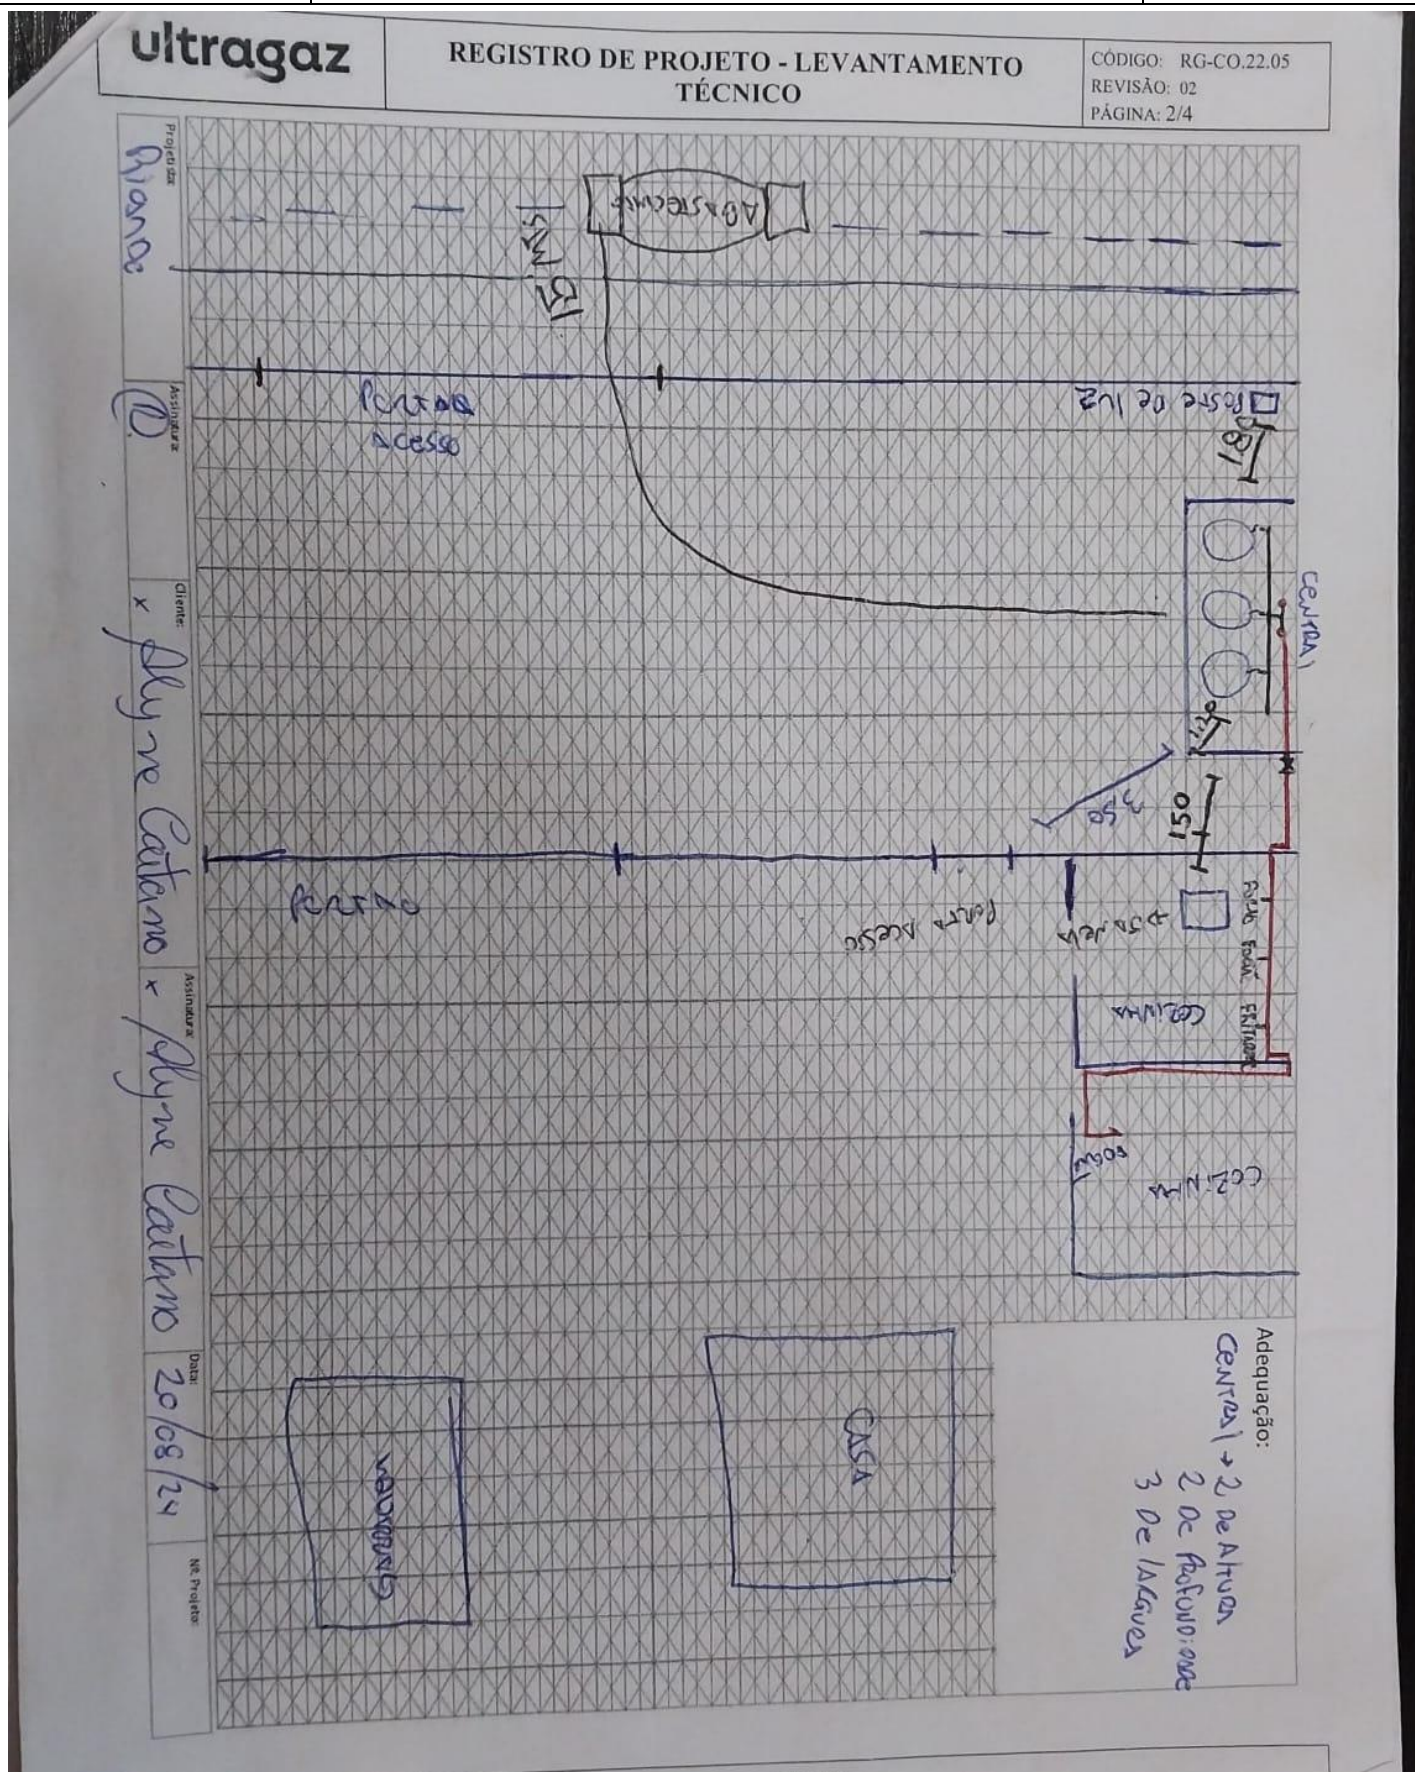 ultragaz
REGISTRO DE PROJETO - LEVANTAMENTO
TÉCNICO
CÓDIGO: RG-CO.22.05
REVISÃO: 02
PÁGINA: 2/4
Projetista:
Assinatura:
Cliente:
x Alyne Caetano
Assinatura:
x Alyne Caetano
Data:
20/08/24
Nº. Projeto:
15 Mts
Portao
Acesso
Poste De luz
180
CENTRAl
3,50
150
Portao
Porta Acesso
Janela
Forno
Fogão
COZINHA
Fogão
COZINHA
CASA
Adequação:
CENTRAl → 2 De AlturA
2 De PROFUNDIDADE
3 De lARGURA